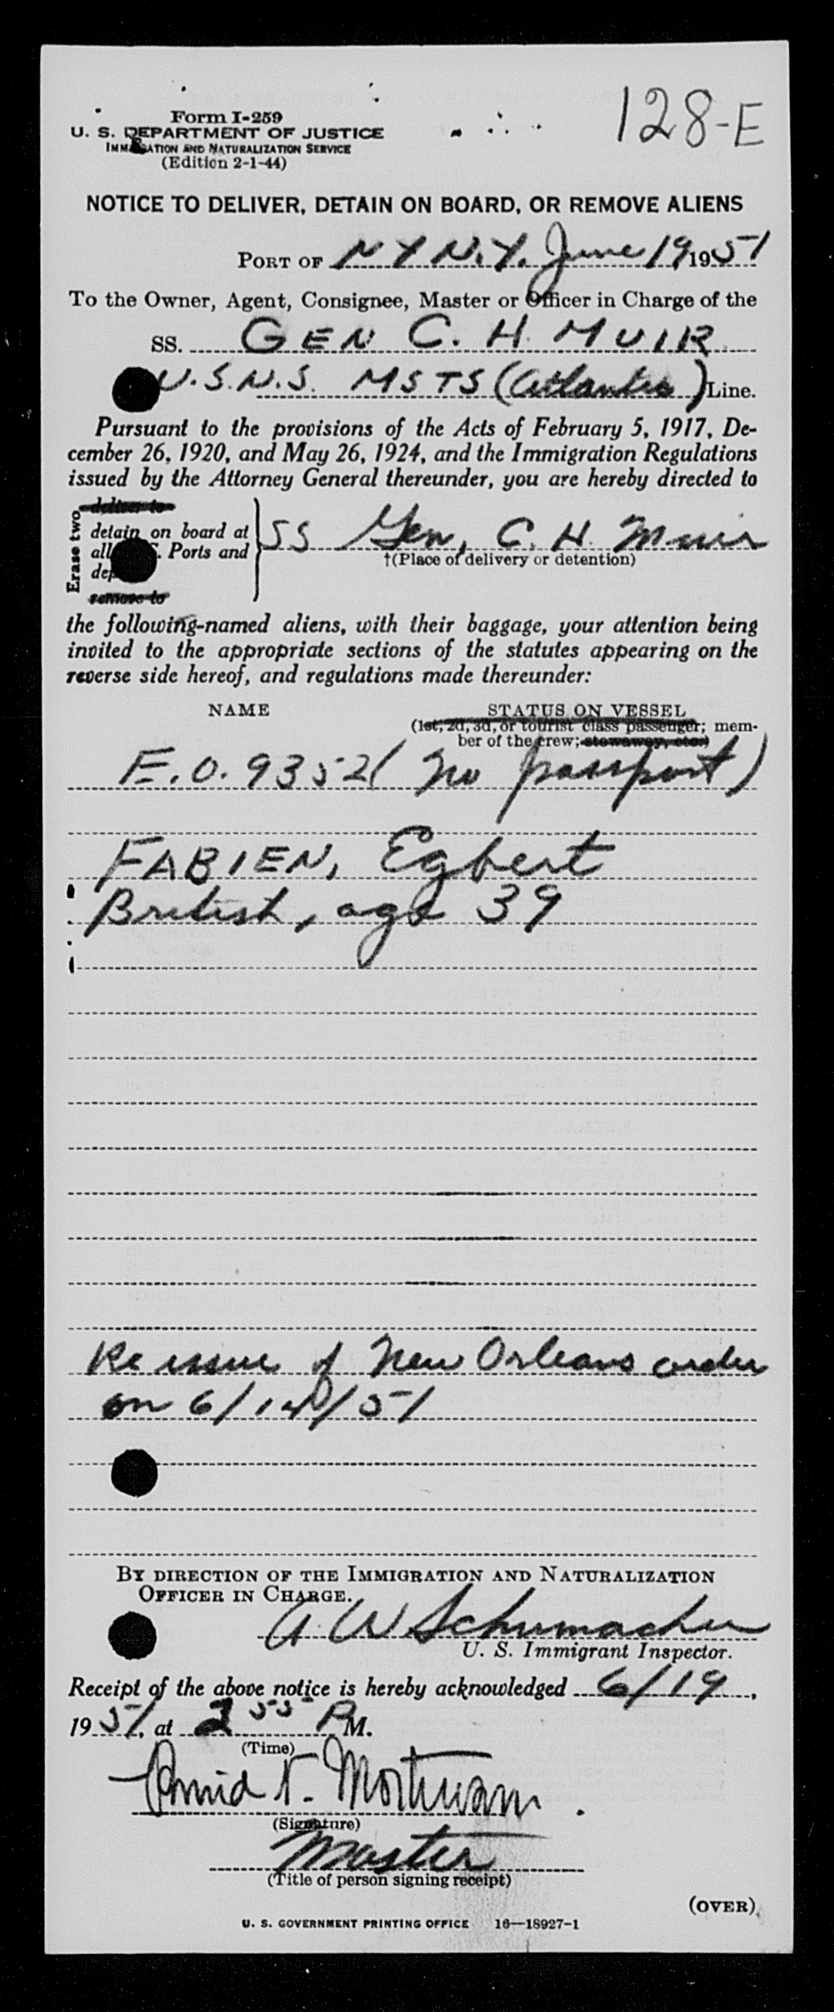 128-E
Form I-259
U. S. DEPARTMENT OF JUSTICE
IMMIGRATION AND NATURALIZATION SERVICE
(Edition 2-1-44)
NOTICE TO DELIVER, DETAIN ON BOARD, OR REMOVE ALIENS
PORT OF N Y N.Y. June 19 1951
To the Owner, Agent, Consignee, Master or Officer in Charge of the
SS. GEN C. H. MUIR
U.S.N.S. MSTS (Atlantic) Line.
Pursuant to the provisions of the Acts of February 5, 1917, De-
cember 26, 1920, and May 26, 1924, and the Immigration Regulations
issued by the Attorney General thereunder, you are hereby directed to
Erase two
deliver to
detain on board at
all Ports and
remove to
SS Gen. C. H. Muir
†(Place of delivery or detention)
the following-named aliens, with their baggage, your attention being
invited to the appropriate sections of the statutes appearing on the
reverse side hereof, and regulations made thereunder:
NAME STATUS ON VESSEL
(1st, 2d, 3d, or tourist class passenger; mem-
ber of the crew; stowaway, etc.)
E.O. 9352 (no passport)
FABIEN, Egbert
British, age 39
Re issue of New Orleans order
on 6/14/51
BY DIRECTION OF THE IMMIGRATION AND NATURALIZATION
OFFICER IN CHARGE.
A W Schumacher
U. S. Immigrant Inspector.
Receipt of the above notice is hereby acknowledged 6/19,
1951, at 2 55 PM.
(Time)
(Signature)
Master
(Title of person signing receipt)
(OVER)
U. S. GOVERNMENT PRINTING OFFICE 16—18927-1